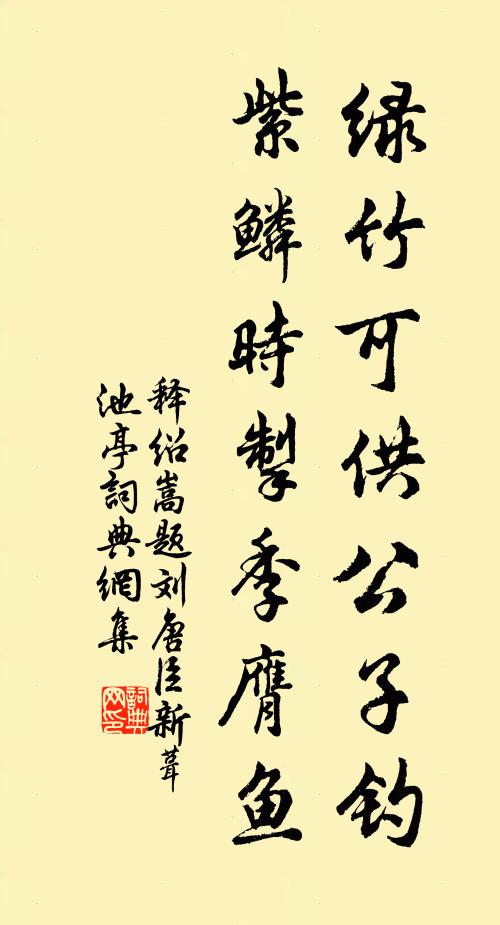 绿竹可供公子钓
紫鳞時掣季膺鱼
释绍嵩题刘唐臣新葺
池亭詞典網集
詞典网印